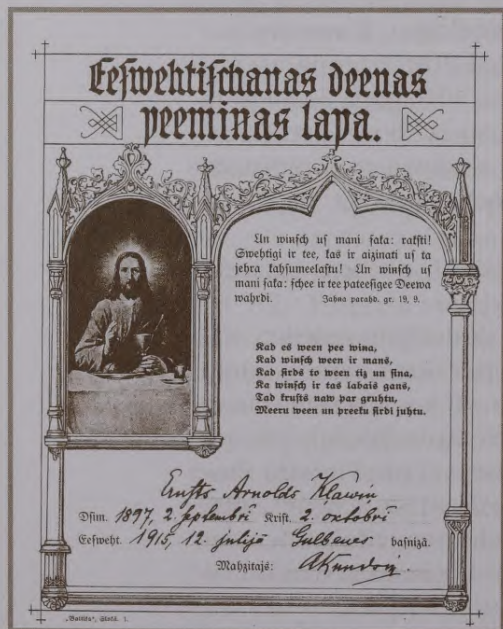 Eeſwehtiſchanas deenas
peeminas lapa.
Un winſch uſ mani ſaka: rakſti!
Swehtigi ir tee, kas ir aizinati uſ ta
jehra kahſumeelaſtu! Un winſch uſ
mani ſaka: ſchee ir tee pateeſigee Deewa
wahrdi. Jahna parahd. gr. 19, 9.
Kad es ween pee wina,
Kad winſch ween ir mans,
Kad ſirds to ween tiz un ſina,
Ka winſch ir tas labais gans,
Tad kruſts naw par gruhtu,
Meeru ween un preeku ſirdī juhtu.
Ernsts Arnolds Kļawin
Dſim. 1897, 2. septembrī Kriſt. 2. oktobrī
Eeſweht. 1915, 12. julijā Gulbenes baſnizā.
Mahzitajs: